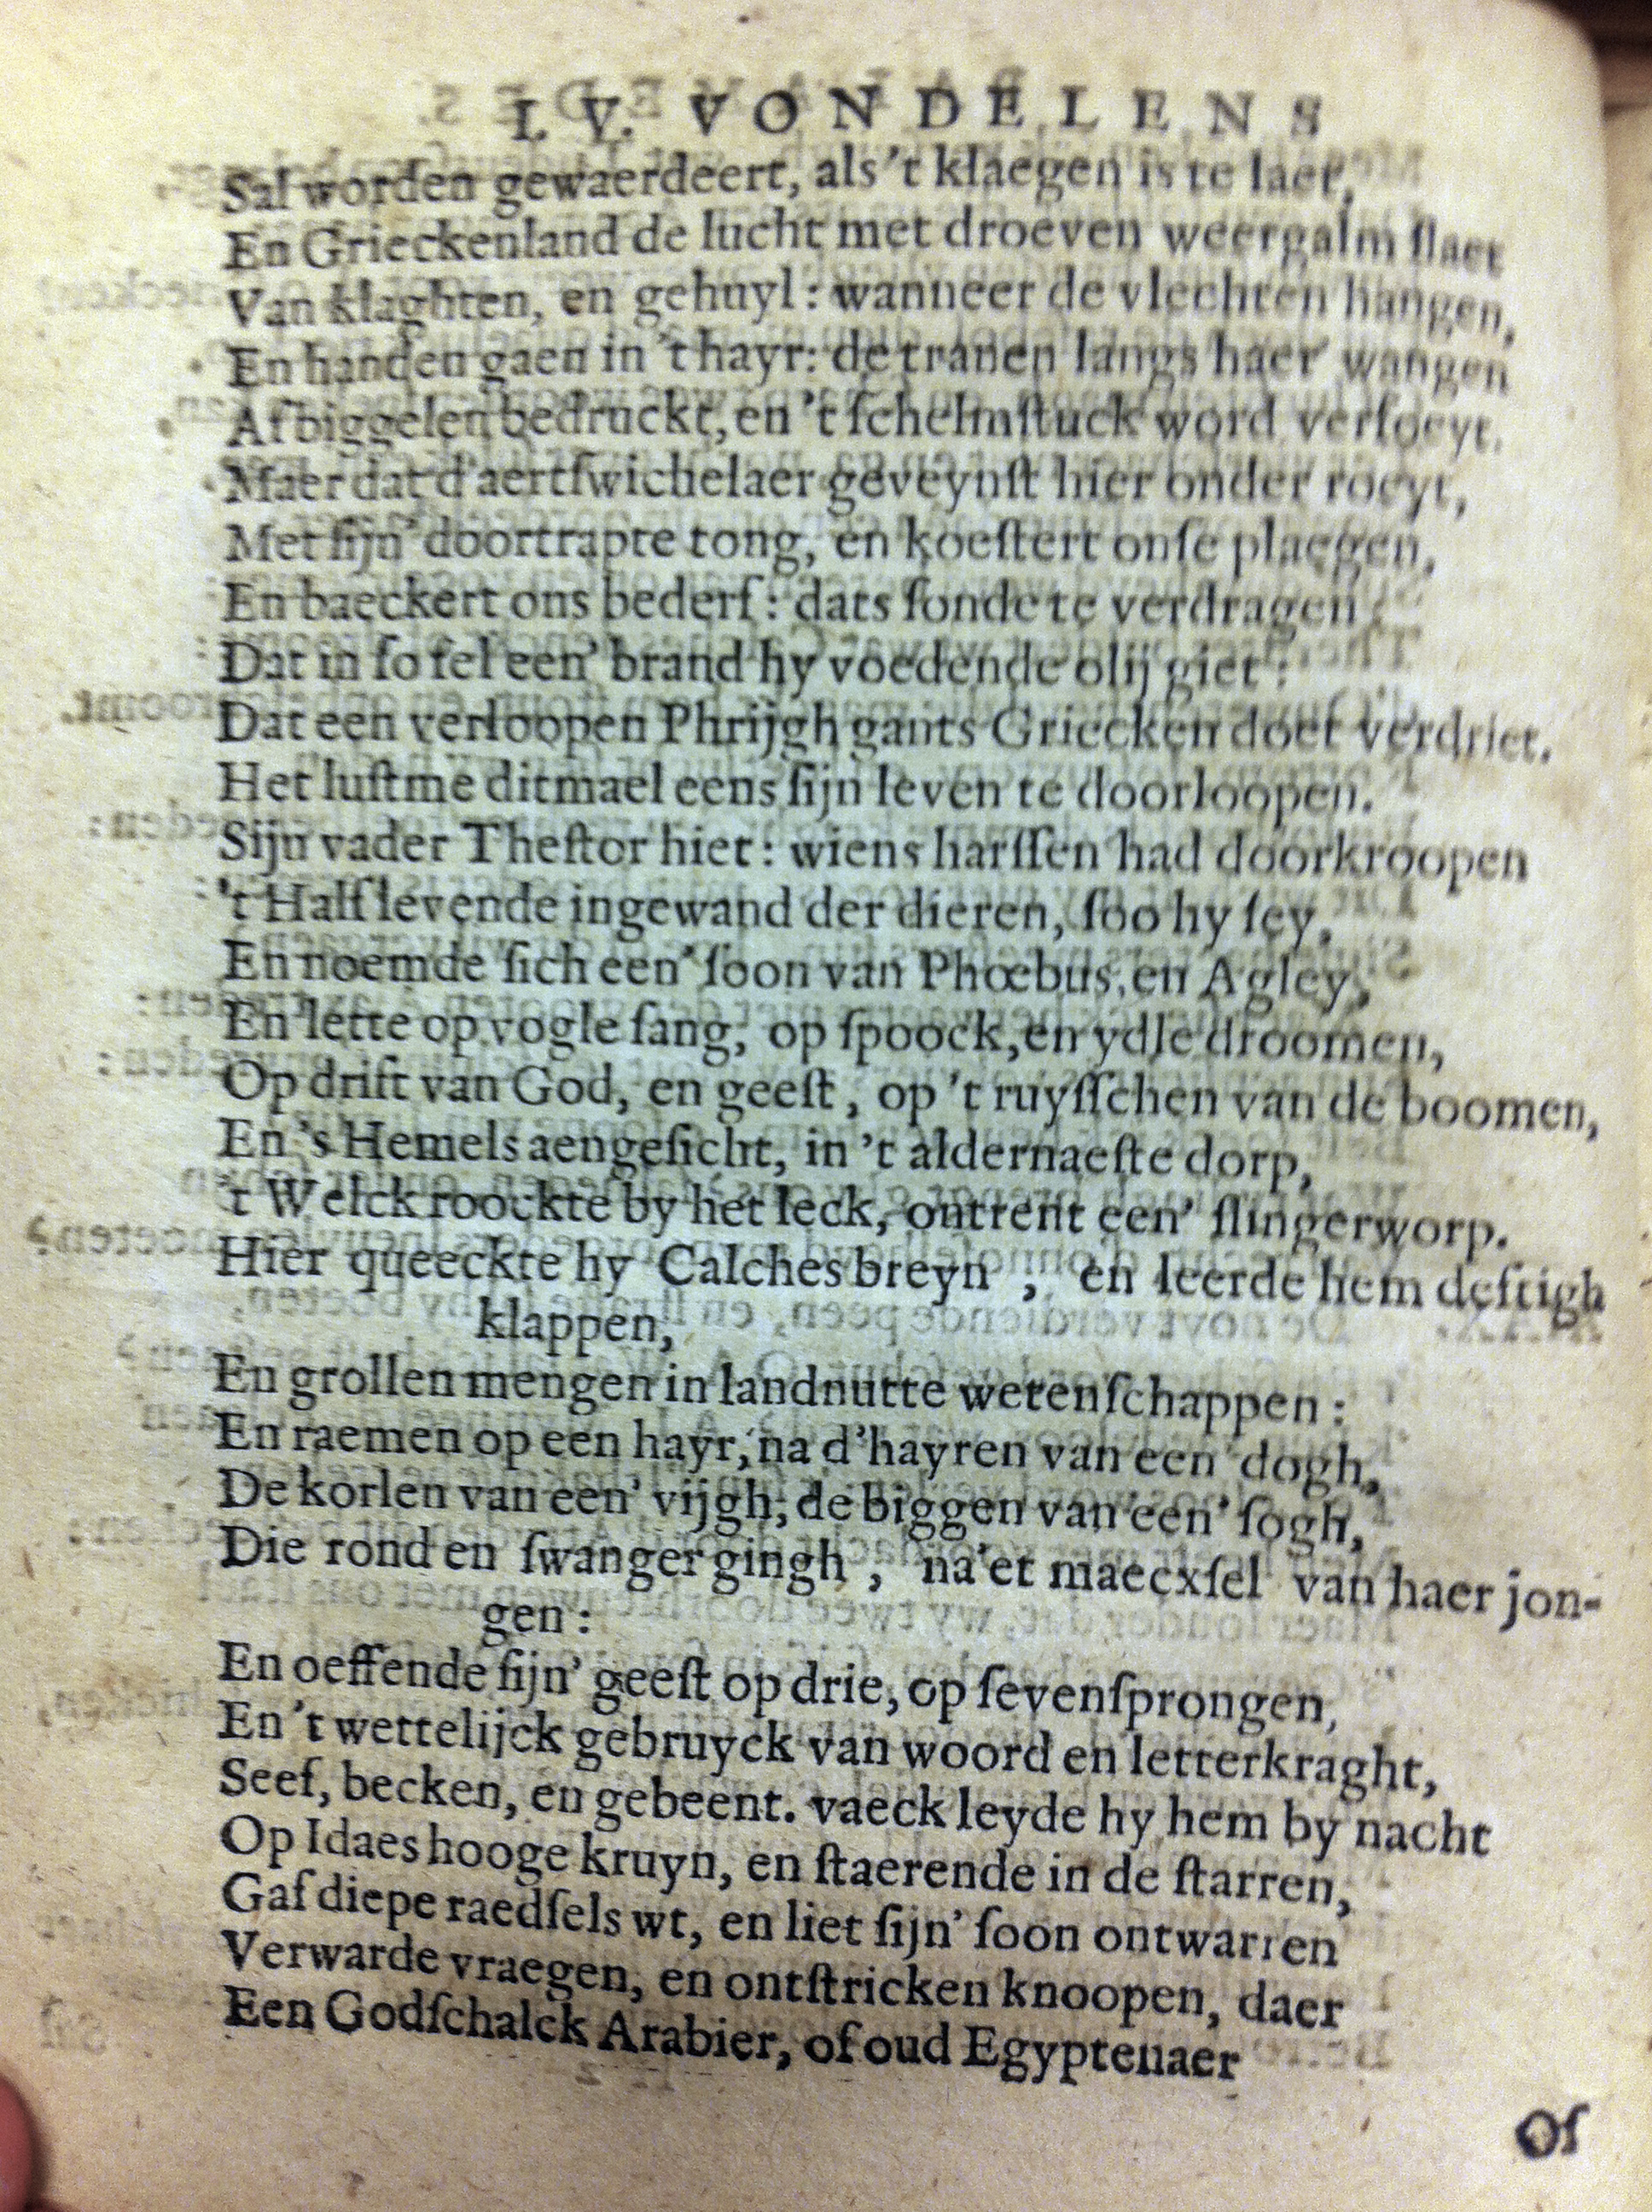 I. V. VONDELENS
Sal worden gewaerdeert, als 't klaegen is te laet,
En Grieckenland de lucht met droeven weergalm ſlaet
Van klaghten, en gehuyl: wanneer de vlechten hangen,
En handen gaen in 't hayr: de tranen langs haer wangen
Afbiggelen bedruckt, en 't ſchelmſtuck word verfoeyt.
Maer dat d'aertſwichelaer geveynſt hier onder roeyt,
Met ſijn' doortrapte tong, en koeſtert onſe plaegen,
En baeckert ons bederf: dats ſonde te verdragen
Dat in ſo fel een' brand hy voedende olij giet:
Dat een verloopen Phrijgh gants Griecken doet verdriet.
Het luſtme ditmael eens ſijn leven te doorloopen.
Sijn vader Theſtor hiet: wiens harſſen had doorkroopen
't Half levende ingewand der dieren, ſoo hy ſey,
En noemde ſich een' ſoon van Phœbus, en Agley,
En lette op vogle ſang, op ſpoock, en ydle droomen,
Op drift van God, en geeſt, op 't ruyſſchen van de boomen,
En 's Hemels aengeſicht, in 't aldernaeſte dorp,
't Welck roockte by het leck, ontrent een' ſlingerworp.
Hier queeckte hy Calches breyn, en leerde hem deftigh
klappen,
En grollen mengen in landnutte wetenſchappen:
En raemen op een hayr, na d'hayren van een' dogh,
De korlen van een' vijgh, de biggen van een' ſogh,
Die rond en ſwanger gingh, na'et maecxſel van haer jon-
gen:
En oeffende ſijn' geeſt op drie, op ſevenſprongen,
En 't wettelijck gebruyck van woord en letterkraght,
Seef, becken, en gebeent. vaeck leyde hy hem by nacht
Op Idaes hooge kruyn, en ſtaerende in de ſtarren,
Gaf diepe raedſels wt, en liet ſijn' ſoon ontwarren
Verwarde vraegen, en ontſtricken knoopen, daer
Een Godſchalck Arabier, of oud Egyptenaer
Of